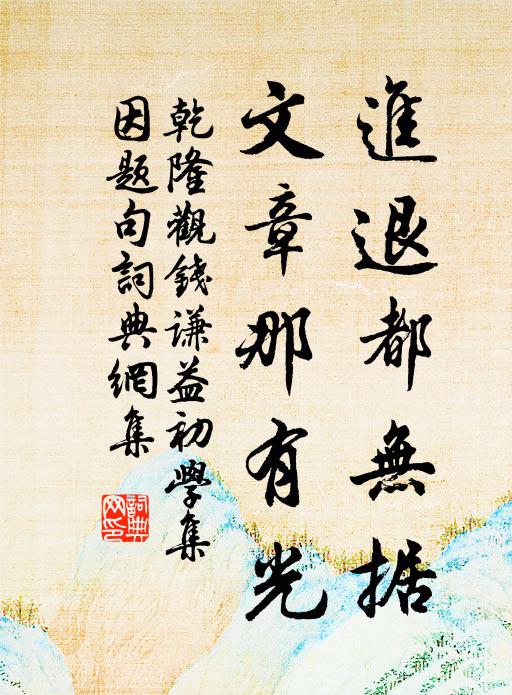 進退都無据
文章那有光
乾隆觀錢謙益初學集
因题句詞典網集
詞典
网印